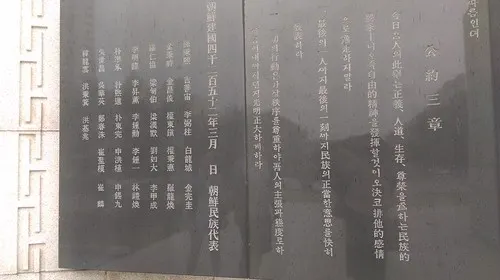 름인뎌
公約三章
今日吾人의此擧는正義、人道、生存、尊榮을爲하는民族的
要求이니오즉自由的精神을發揮할것이오決코排他的感情
으로逸走하지말라
一、最後의一人까지最後의一刻까지民族의正當한意思를快히
發表하라
一、一切의行動은가장秩序를尊重하야吾人의主張과態度로하
여금어대까지던지光明正大하게하라
朝鮮建國四千二百五十二年三月 日 朝鮮民族代表
孫秉熙 吉善宙 李弼柱 白龍城 金完圭
金秉祚 金昌俊 權東鎭 權秉悳 羅龍煥
羅仁協 梁甸伯 梁漢默 劉如大 李甲成
李明龍 李昇薰 李鍾勳 李鍾一 林禮煥
朴準承 朴熙道 朴東完 申洪植 申錫九
吳世昌 吳華英 鄭春洙 崔聖模 崔麟
韓龍雲 洪秉箕 洪基兆